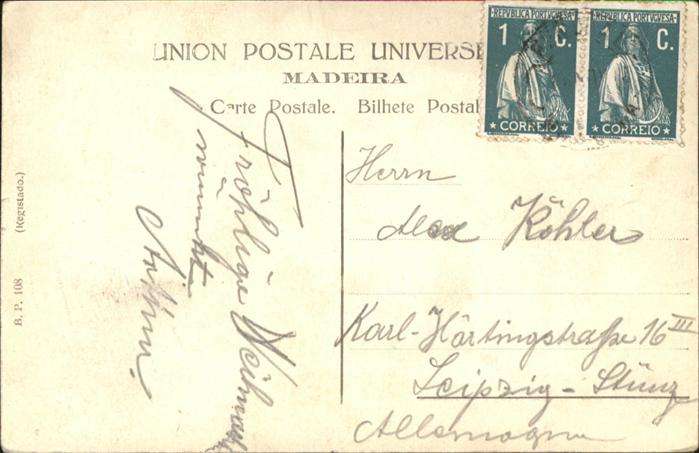 UNION POSTALE UNIVERSE
MADEIRA
Carte Postale. Bilhete Postal
REPUBLICA PORTUGUESA
1 C.
CORREIO
REPUBLICA PORTUGUESA
1 C.
CORREIO
Fröhliche Weihnacht
wünscht
Arthur.
Herrn
Alex Köhler
Karl-Härtingstraße 16 III
Leipzig-Stünz
Allemagne
B. P. 108 (Registado.)